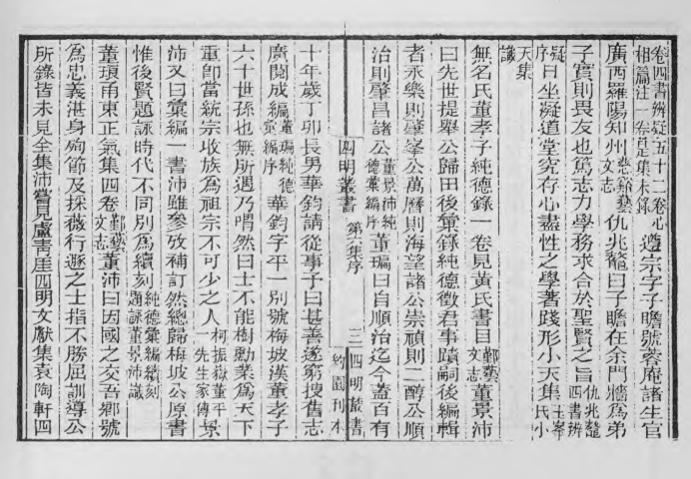 卷四書辨疑五十二卷心相篇注一卷是集未錄遵宗字子瞻號蓉庵諸生官
廣西羅陽知州慈谿藝文志仇兆鼇曰子瞻在余門牆為弟
子實則畏友也篤志力學務求合於聖賢之旨仇兆鼇四書辨
疑序曰坐凝道堂究存心盡性之學著踐形小天集王峯氏小
天集識
無名氏董孝子純德錄一卷見黃氏書目鄞藝文志董景沛
曰先世提舉公歸田後彙錄純德徵君事蹟嗣後編輯
者永樂則肇峯公萬曆則海望諸公崇禎則二醇公順
治則肇昌諸公董景沛純德彙編序董瑞曰自順治迄今蓋百有
四明叢書 第六集序 三 四明叢書 約園刊本
十年歲丁卯長男華鈞請從事予曰甚善遂窮搜舊志
廣閱成編董瑞純德彙編序華鈞字平一別號梅坡漢董孝子
六十世孫也無所遇乃喟然曰士不能樹勳業為天下
重卽當統宗收族為祖宗不可少之人柯振嶽董平一先生家傳景
沛又曰彙編一書沛雖參攷補訂然總歸梅坡公原書
惟後賢題詠時代不同別為續刻純德彙編續刻題詠董景沛識
董琅甬東正氣集四卷鄞藝文志董沛曰因國之交吾鄉號
為忠義湛身殉節及採薇行遯之士指不勝屈訓導公
所錄皆未見全集沛嘗見盧靑厓四明文獻集袁陶軒四